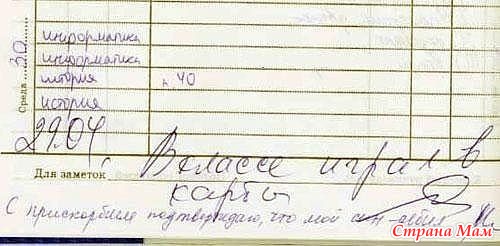 Среда 30
информатика
информатика
история п. 40
история
29.04. В классе играл в
Для заметок
карты
С прискорбием подтверждаю, что мой сын -
Страна Мам